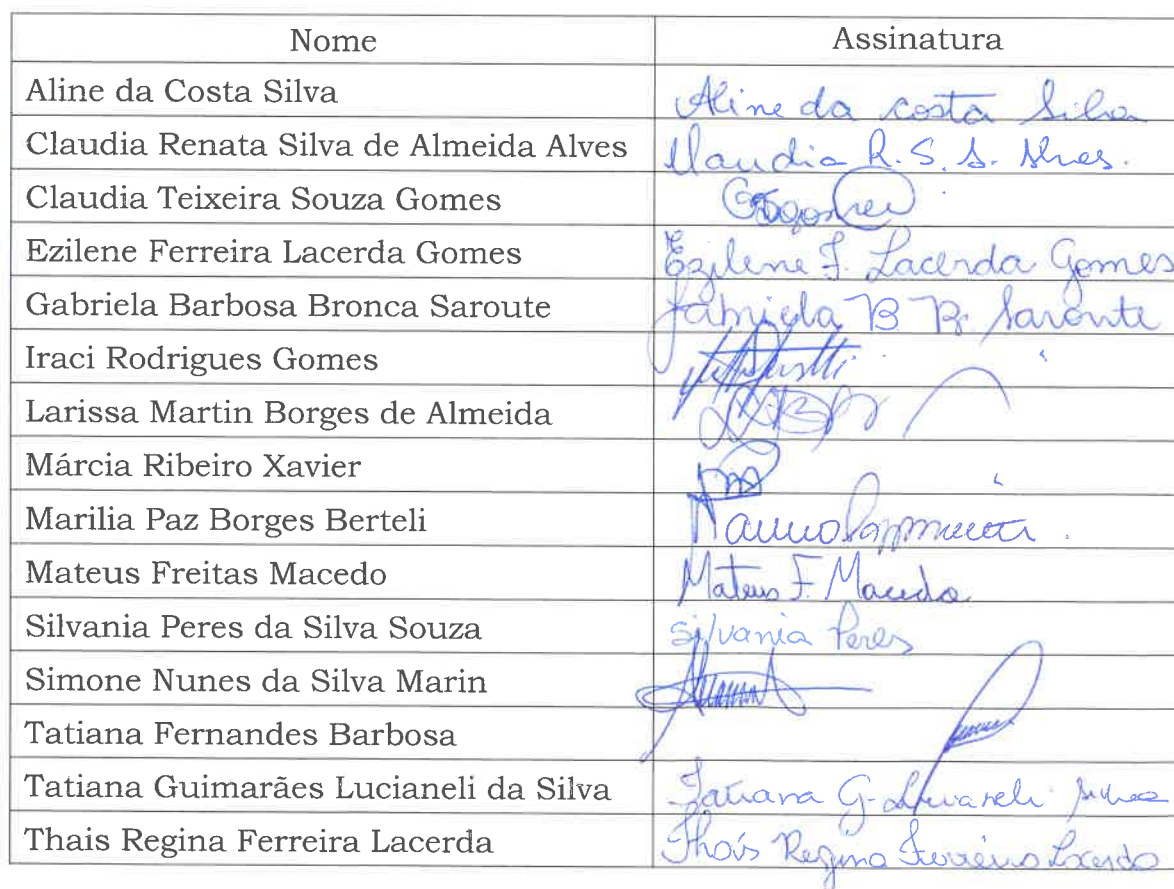 Nome Assinatura
Aline da Costa Silva Aline da costa Silva
Claudia Renata Silva de Almeida Alves Claudia R. S. A. Alves.
Claudia Teixeira Souza Gomes
Ezilene Ferreira Lacerda Gomes Ezilene F. Lacerda Gomes
Gabriela Barbosa Bronca Saroute Gabriela B. B. Saroute
Iraci Rodrigues Gomes
Larissa Martin Borges de Almeida
Márcia Ribeiro Xavier
Marilia Paz Borges Berteli
Mateus Freitas Macedo Mateus F. Macedo
Silvania Peres da Silva Souza Silvania Peres
Simone Nunes da Silva Marin
Tatiana Fernandes Barbosa
Tatiana Guimarães Lucianeli da Silva Tatiana G. Lucianeli Silva
Thais Regina Ferreira Lacerda Thais Regina Ferreira Lacerda